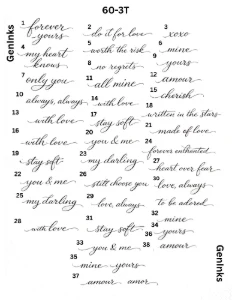 60-3T
GenInks
1 forever yours
2 do it for love
3 xoxo
4 my heart knows
5 worth the risk
6 mine
7 only you
8 no regrets
9 yours
10 always, always
11 all mine
12 amour
13 with love
14 with love
15 cherish
16 with love
17 stay soft
18 written in the stars
19 stay soft
20 you & me
21 made of love
22 you & me
23 my darling
24 forever enchanted
25 my darling
26 still choose you
27 heart over fear
28 with love
29 love, always
30 love, always
to be adored
31 stay soft
32 mine
33 you & me
34 yours
35 mine yours
37 amour amor
38 amour
GenInks